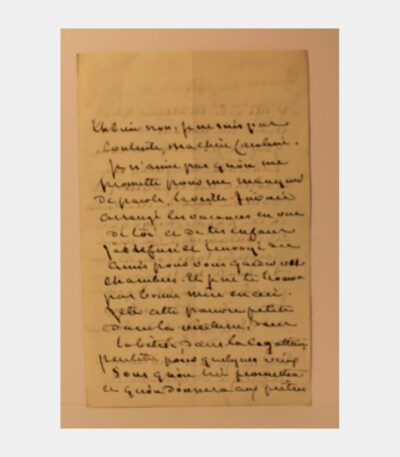 Eh bien non, je ne suis pas
contente, ma chère Caroline.
Je n'aime pas qu'on me
promette pour me manquer
de parole la veille. J'avais
arrangé les vacances en vue
de toi et de tes enfans
j'ai refusé et renvoyé des
amis pour vous garder vos
chambres. Et je ne te trouve
pas bonne mère en ceci.
Jeter cette pauvre petite
dans la dans
la bêtise dans la
peutêtre pour quelques vieux
sous qu'on lui promettra
et qu'on donnera aux prêtres